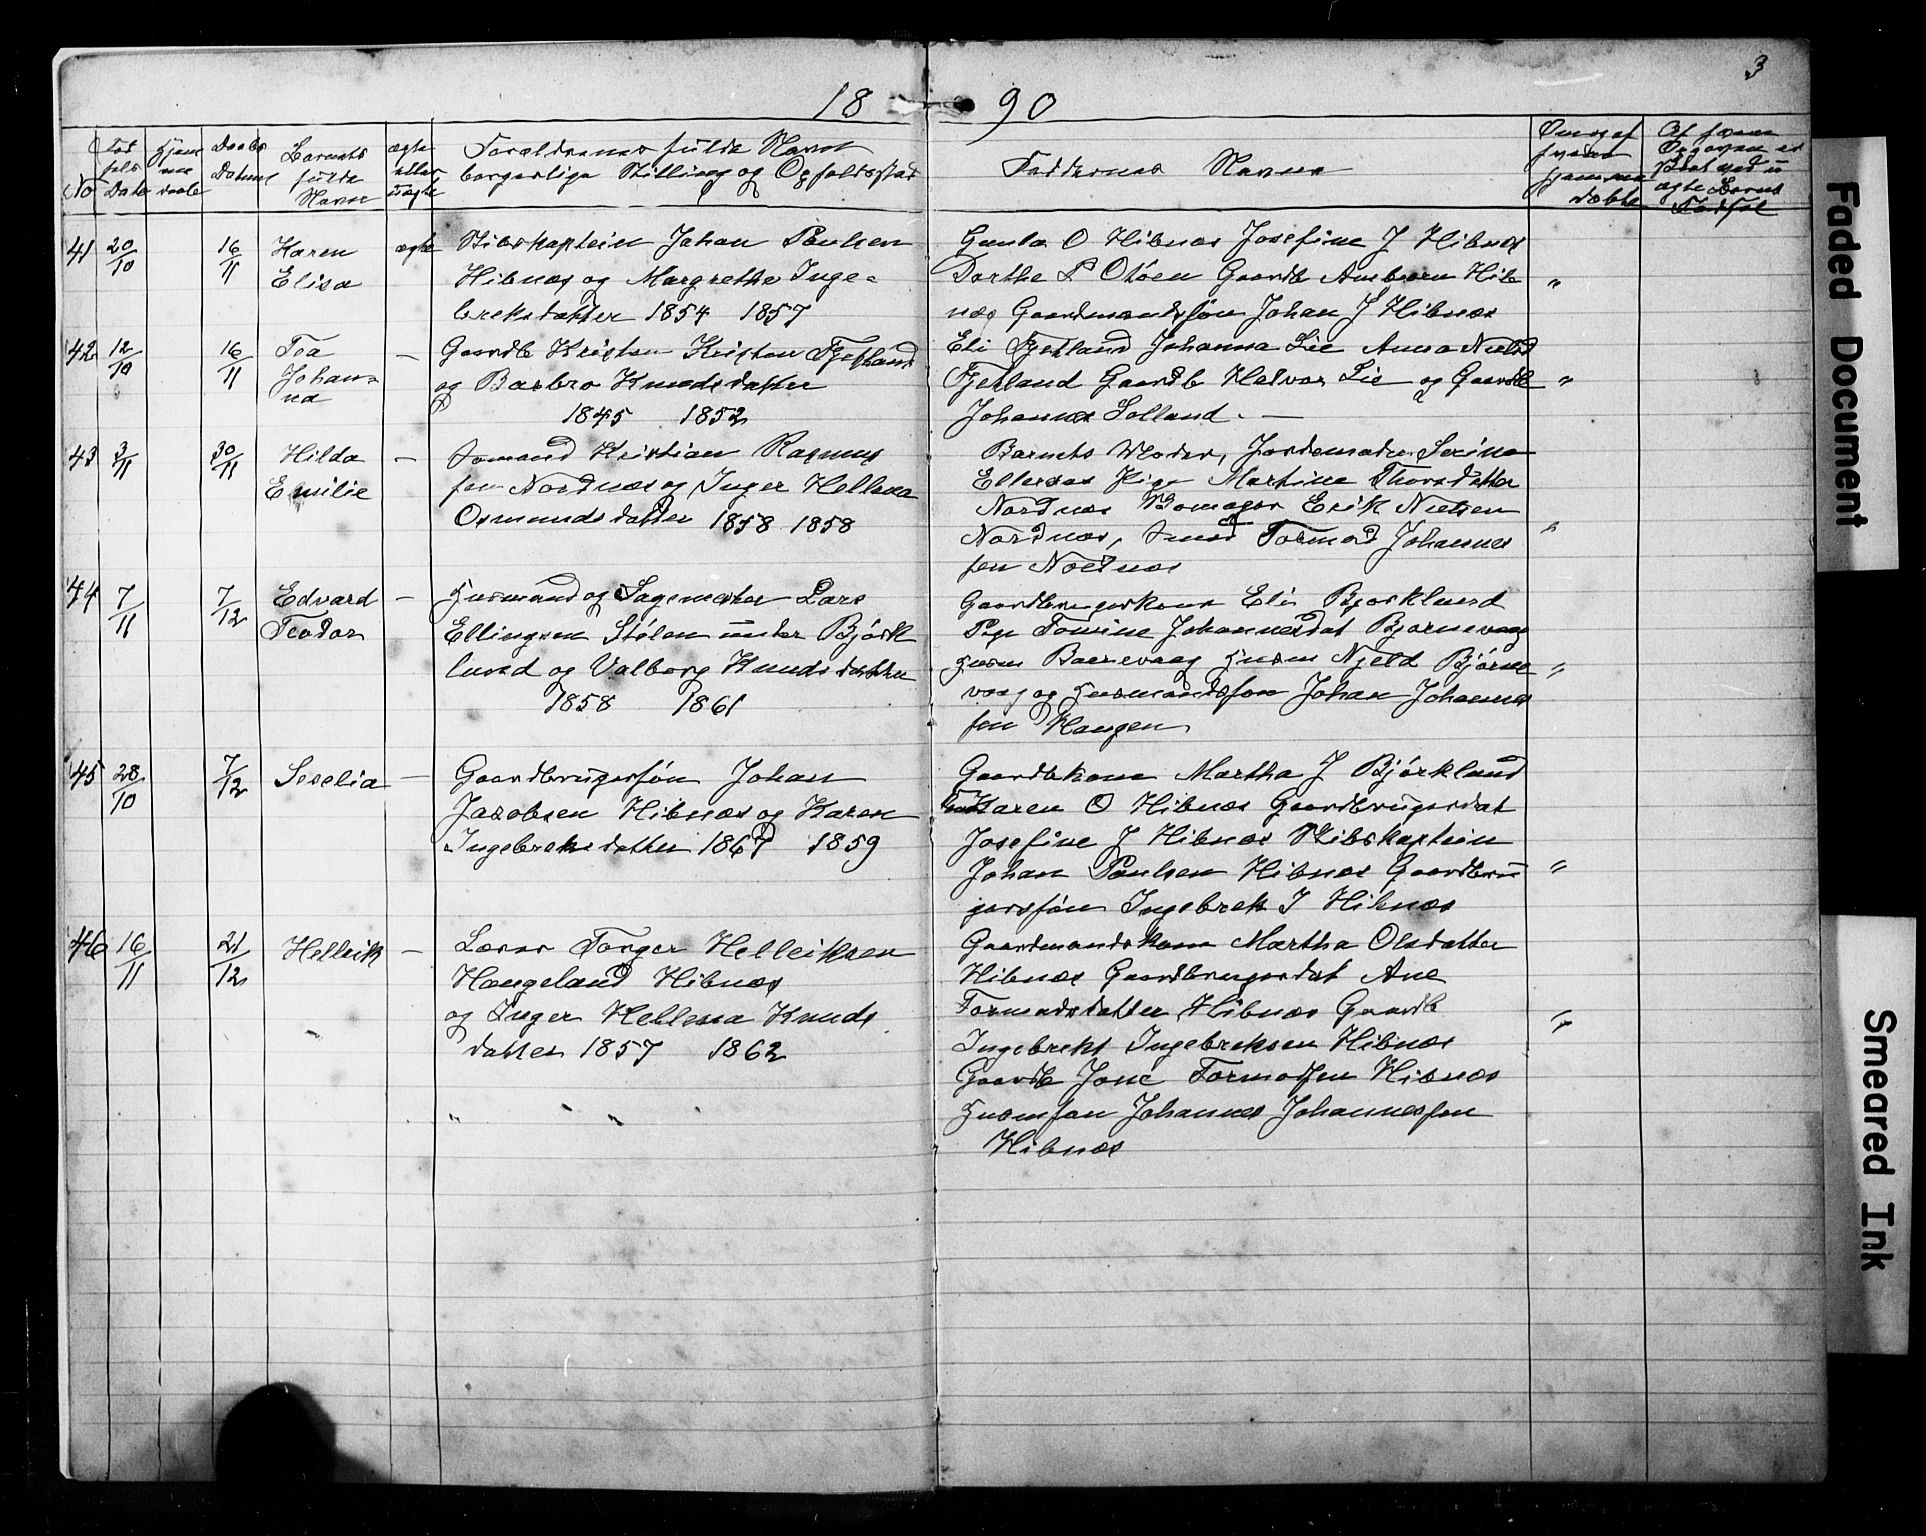 3
18 90
No
Fød
sels
Date
Hjem
me
daabs
Daabs
Datum
Barnets
fulde
Navn
ægte
eller
uægte
Forældrenes fulde Navn
borgerlige Stilling og Opholdssted
Faddernes Navne
Om og af
hvem
hjemme
døbte
Af hvem
Opgaven er
ægte Barns
Fødsel
41 20/10 16/11 Karen
Elisa
ægte
Skibskaptein Johan Poulsen
Hibnæs og Margrethe Inge-
breksdatter 1854 1857
Gunla O Hibnæs Josefine J Hibnæs
Dorthe P Otøen Gaardb Amborn Hib
næs Gaardmandsføn Johan J Hibnæs "
42 12/10 16/11 Tea
Johan-
na
—
Gaardb Kristen Kristen Fjetland
og Barbro Knudsdatter
1845 1852
Eli Fjetland Johanna Lie Anna Nielsd
Fjetland Gaardb Halvor Lie og Gaardb "
Johannes Solland. —
43 3/11 30/11 Hilda
Emilie
—
Sømand Kristian Rasmus
fen Nordnæs og Inger Hellena
Osmundsdatter 1858 1858
Barnets Moder, Jordemoder Serine
Ellersæs Pige Martine Thorsdatter
Nordnæs Skomager Erik Nielsen
Nordnæs, Smed Tormod Johannes "
fen Nordnæs
44 7/11 7/12 Edvard
Teodor
—
Husmand og Sagemester Lars
Ellingsen Stølen under Bjørk
lund og Valborg Knudsdatter
1858 1861
Gaardbrugerkone Eli Bjorklund
Pige Tomine Johannesdat Bjornevaag
Husm Baerevaag Husm Njeld Bjørne "
vaag og Husmandsføn Johan Johannes
fen Haugen
45 28/10 7/12 Seselia —
Gaardbrugersføn Johan
Jacobsen Hibnæs og Karen
Ingebreksdatter 1867 1859
Gaardbkone Martha J Bjørklund
Karen O Hibnæs Gaardbrugerdat
Josefine J Hibnæs Skibskaptein
Johan Poulsen Hibnæs Gaardbru "
gersføn Ingebrek J Hibnæs
46 16/11 21/12 Helleik —
Lærer Torger Helleiksen
Haugeland Hibnæs
og Inger Hellena Knuds
datter 1857 1862
Gaardmandskone Martha Olsdatter
Hibnæs Gaardbrugerdat Ane
Tormodsdatter Hibnæs Gaardb "
Ingebrekt Ingebreksen Hibnæs
Gaardb Jone Tormodfen Hibnæs
Husmføn Johannes Johannesfen
Hibnæs
Faded Document
Smeared Ink